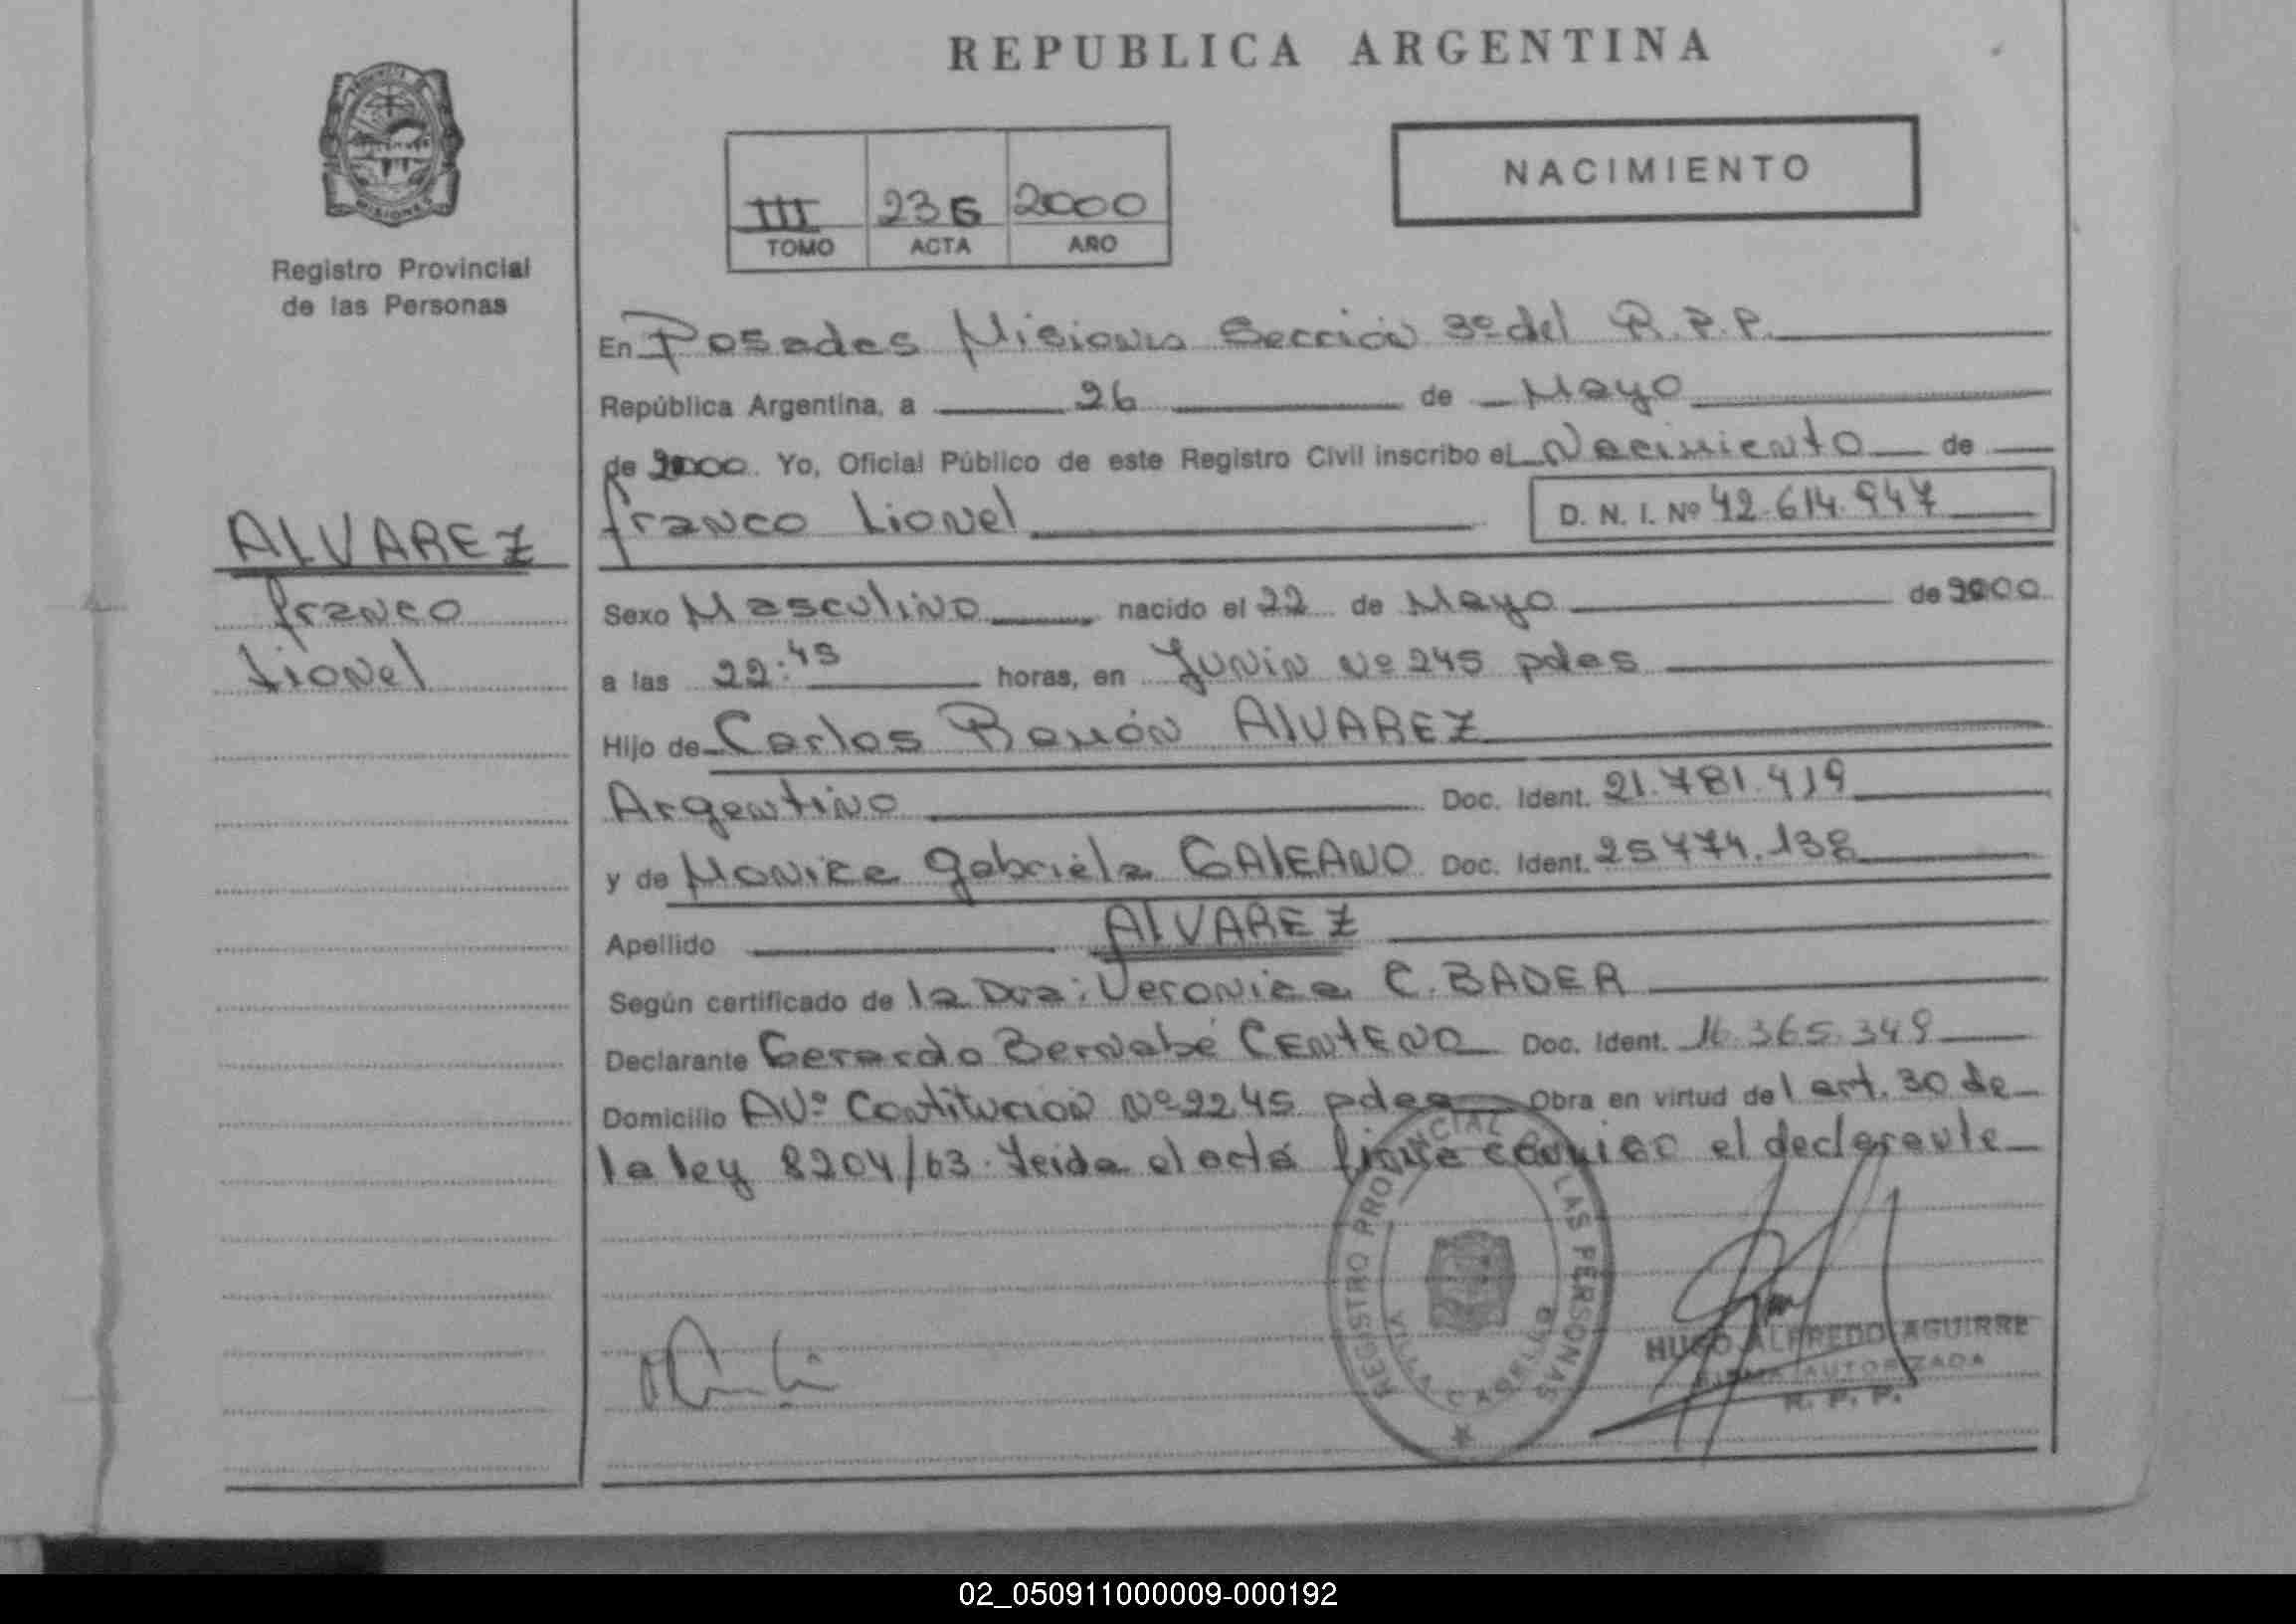 REPUBLICA ARGENTINA
NACIMIENTO
III 236 2000
TOMO ACTA AÑO
MISIONES
Registro Provincial
de las Personas
En Posadas Misiones Sección 3º del R.P.P.
República Argentina, a 26 de Mayo
de 2000. Yo, Oficial Público de este Registro Civil inscribo el Nacimiento de
franco Lionel D. N. I. Nº 42.614.947
ALVAREZ
franco
Lionel
Sexo Masculino nacido el 22 de Mayo de 2000
a las 22:45 horas, en Junin Nº 245 pdas
Hijo de Carlos Ramón ALVAREZ
Argentino Doc. Ident. 21.781.419
y de Monica Gabriela GALEANO Doc. Ident. 25474.138
Apellido ALVAREZ
Según certificado de la Dra: Veronica C. BADER
Declarante Gerardo Bernabé CENTENO Doc. Ident. 16.365.349
Domicilio AVº Contitucion Nº 2245 pdas Obra en virtud del art. 30 de
la ley 8204/63. Leida el acta firma conmigo el declarante
REGISTRO PROVINCIAL DE LAS PERSONAS
VILLA CABELLO
HUGO ALFREDO AGUIRRE
FIRMA AUTORIZADA
R. P. P.
02_050911000009-000192